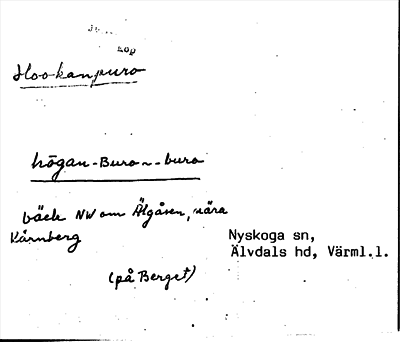 kop
Hookanpuro
högan-Buro~-buro
bäck NW om Älgåsen, nära
Kårnberg
Nyskoga sn,
Älvdals hd, Värml.l.
(på Berget)